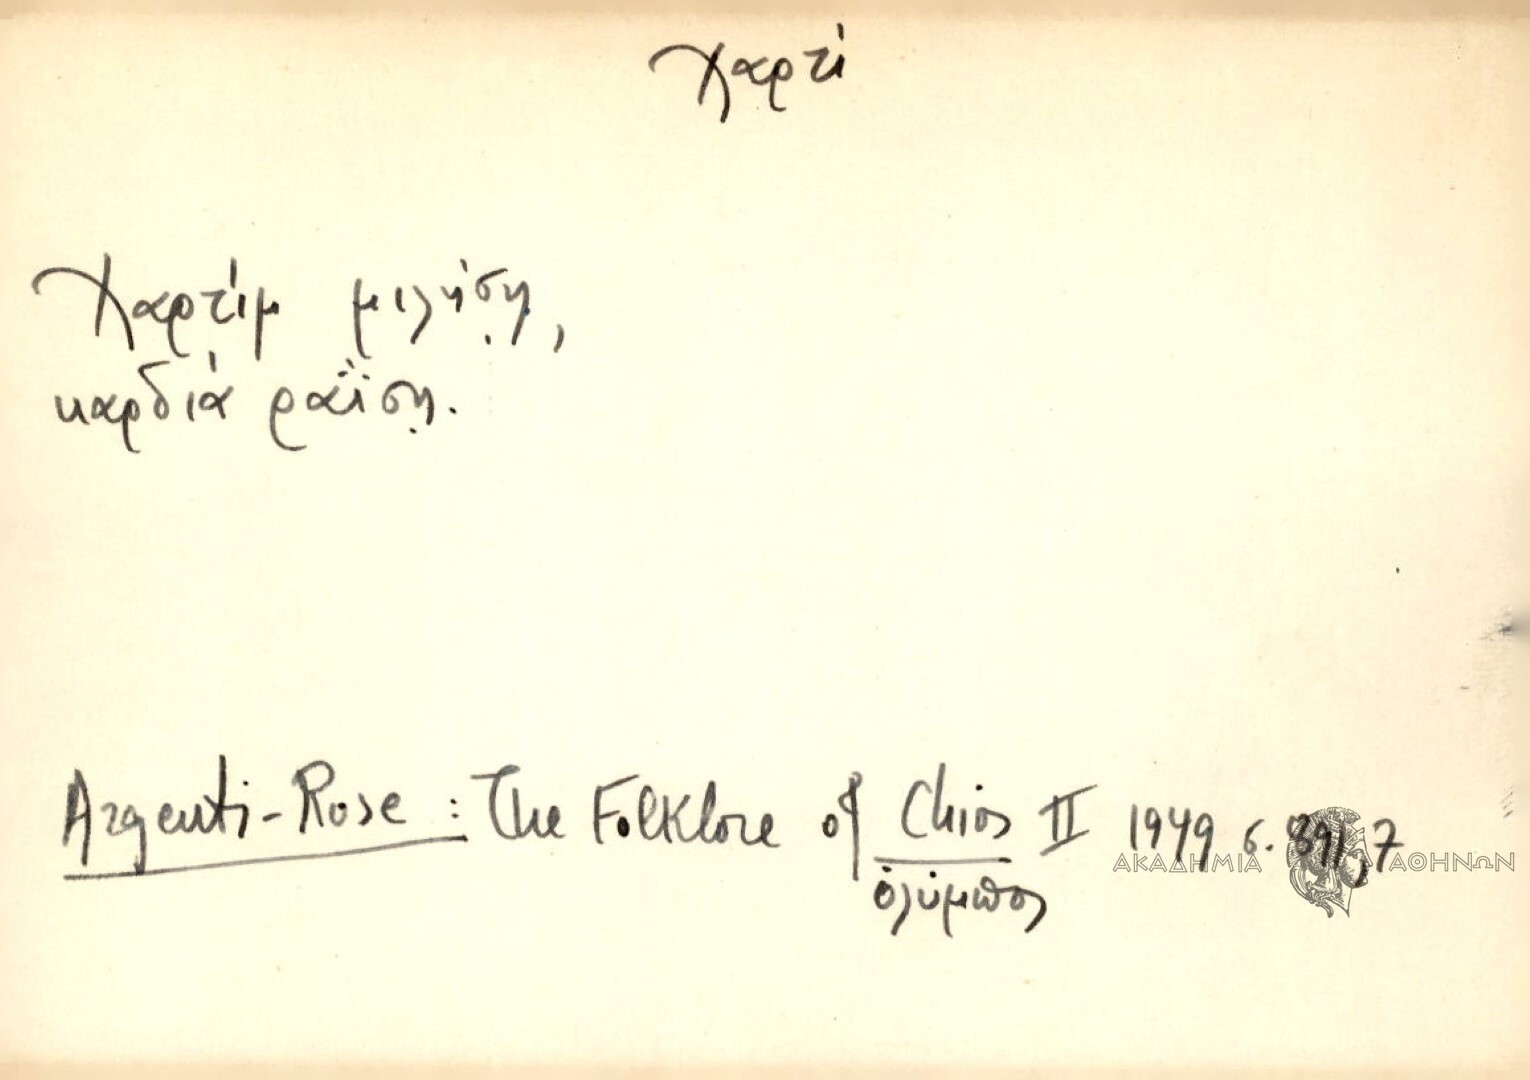 Χαρτί
Χαρτίμ μιλήσῃ,
καρδιά ραΐσῃ.
Argenti-Rose : The Folklore of Chios II 1949 σ. 891,7
ὀλύμπος
ΑΚΑΔΗΜΙΑ ΑΘΗΝΩΝ